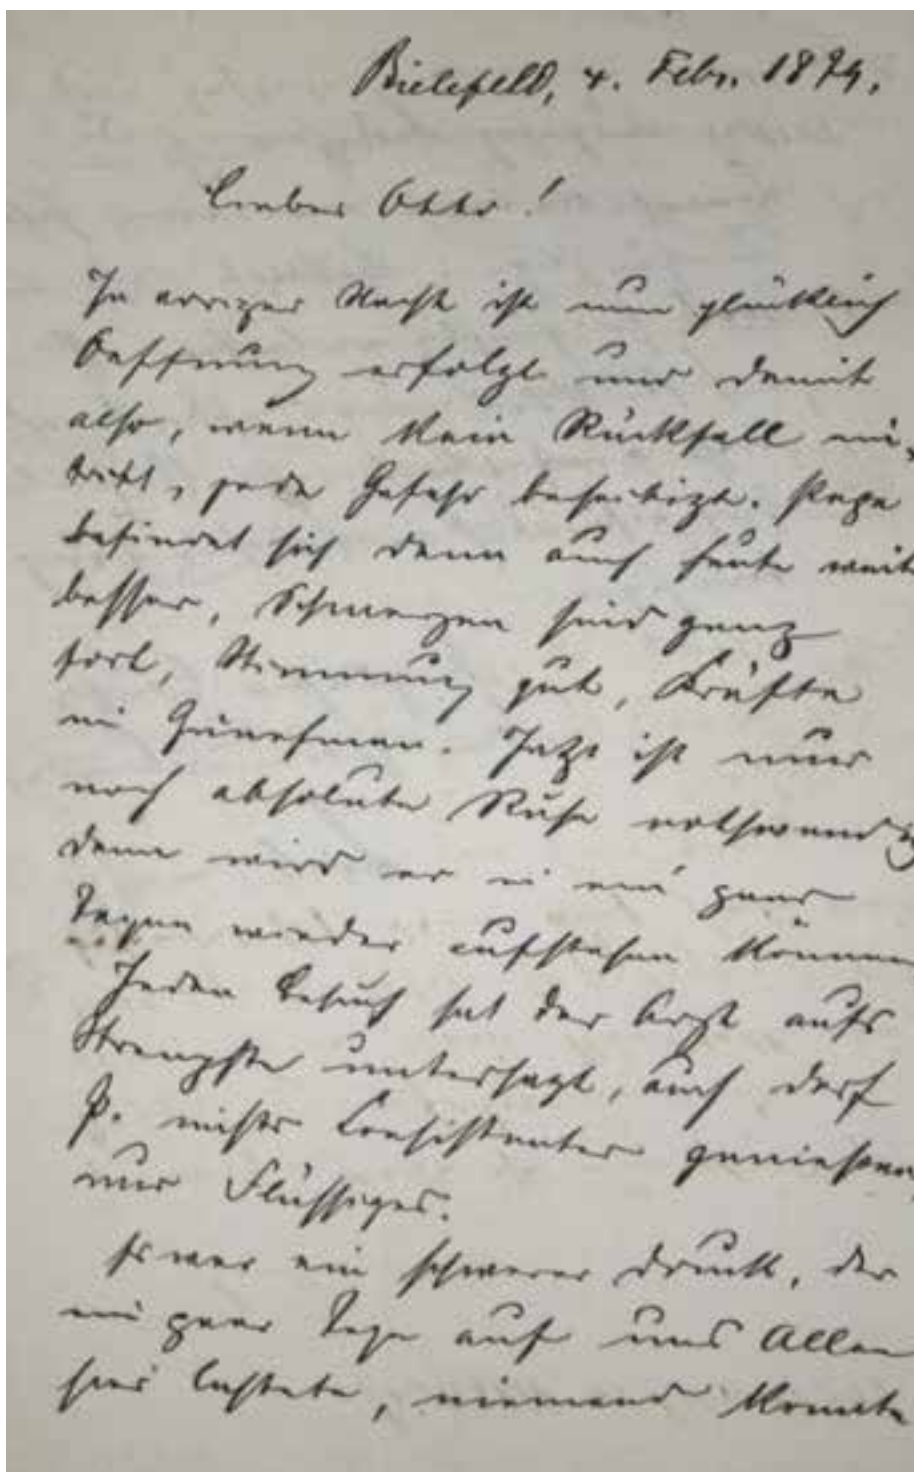 Bielefeld, 4. Febr. 1874.
Lieber Otto!
In voriger Nacht ist nun glücklich
Oeffnung erfolgt und damit
also, wenn kein Rückfall ein-
tritt, jede Gefahr beseitigt. Papa
befindet sich denn auch heute weit
besser, Schmerzen sind ganz
fort, Stimmung gut, Kräfte
im Zunehmen. Jetzt ist nur
noch absolute Ruhe nothwendig
dann wird er in ein paar
Tagen wieder aufstehen können
Jeden Besuch hat der Arzt aufs
Strengste untersagt, auch darf
P. nichts Consistentes genießen,
nur Flüssiges.
Es war ein schwerer Druck, der
ein paar Tage auf uns Allen
hier lastete, niemand konnte